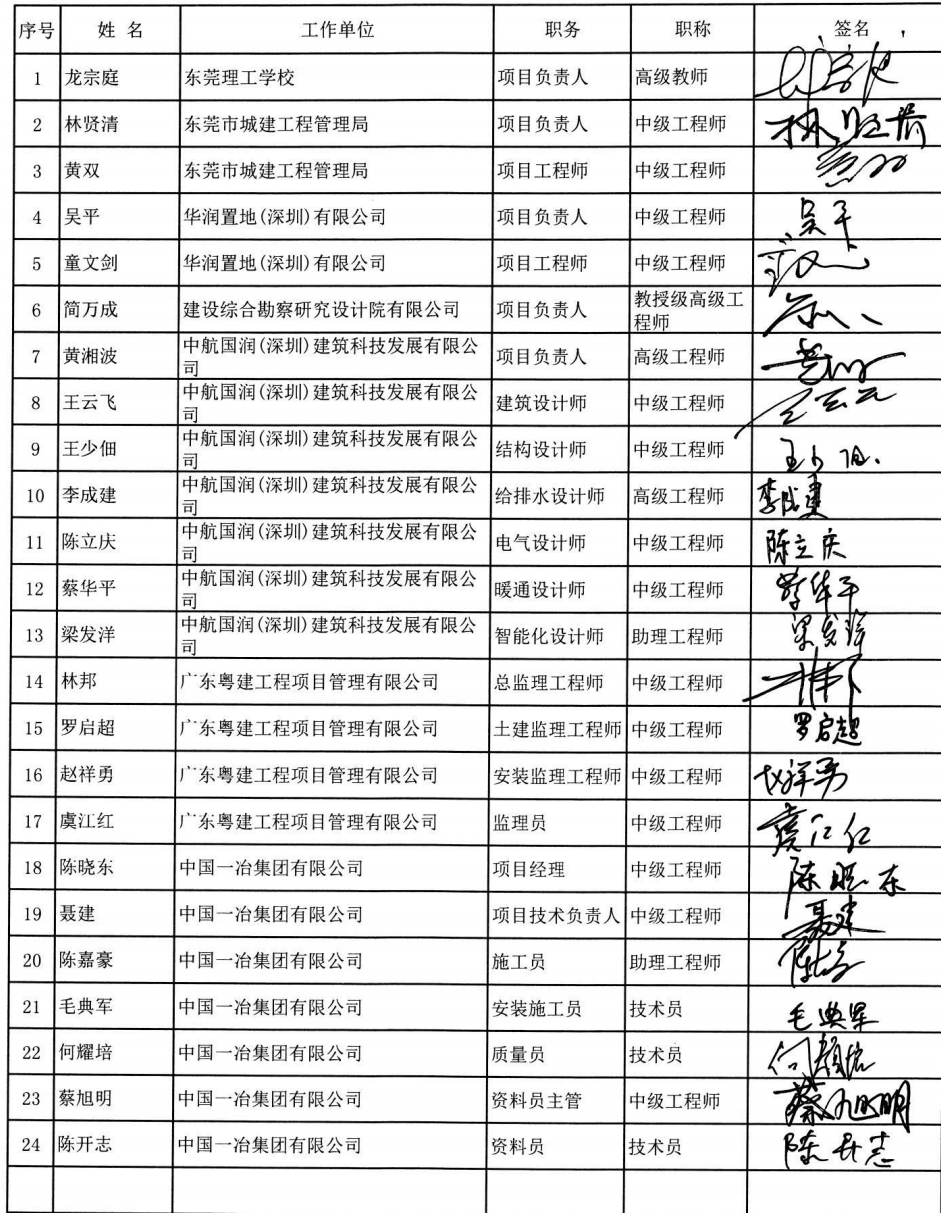 序号 姓 名 工作单位 职务 职称 签名
1 龙宗庭 东莞理工学校 项目负责人 高级教师
2 林贤清 东莞市城建工程管理局 项目负责人 中级工程师 林贤清
3 黄双 东莞市城建工程管理局 项目工程师 中级工程师
4 吴平 华润置地(深圳)有限公司 项目负责人 中级工程师 吴平
5 童文剑 华润置地(深圳)有限公司 项目工程师 中级工程师
6 简万成 建设综合勘察研究设计院有限公司 项目负责人 教授级高级工
程师
7 黄湘波 中航国润(深圳)建筑科技发展有限公 项目负责人 高级工程师
司
8 王云飞 中航国润(深圳)建筑科技发展有限公 建筑设计师 中级工程师
司
9 王少佃 中航国润(深圳)建筑科技发展有限公 结构设计师 中级工程师 王少佃
司
10 李成建 中航国润(深圳)建筑科技发展有限公 给排水设计师 高级工程师 李成建
司
11 陈立庆 中航国润(深圳)建筑科技发展有限公 电气设计师 中级工程师 陈立庆
司
12 蔡华平 中航国润(深圳)建筑科技发展有限公 暖通设计师 中级工程师 蔡华平
司
13 梁发洋 中航国润(深圳)建筑科技发展有限公 智能化设计师 助理工程师 梁发洋
司
14 林邦 广东粤建工程项目管理有限公司 总监理工程师 中级工程师 林邦
15 罗启超 广东粤建工程项目管理有限公司 土建监理工程师 中级工程师 罗启超
16 赵祥勇 广东粤建工程项目管理有限公司 安装监理工程师 中级工程师 赵祥勇
17 虞江红 广东粤建工程项目管理有限公司 监理员 中级工程师 虞江红
18 陈晓东 中国一冶集团有限公司 项目经理 中级工程师 陈晓东
19 聂建 中国一冶集团有限公司 项目技术负责人 中级工程师 聂建
20 陈嘉豪 中国一冶集团有限公司 施工员 助理工程师
21 毛典军 中国一冶集团有限公司 安装施工员 技术员 毛典军
22 何耀培 中国一冶集团有限公司 质量员 技术员 何耀培
23 蔡旭明 中国一冶集团有限公司 资料员主管 中级工程师 蔡旭明
24 陈开志 中国一冶集团有限公司 资料员 技术员 陈开志